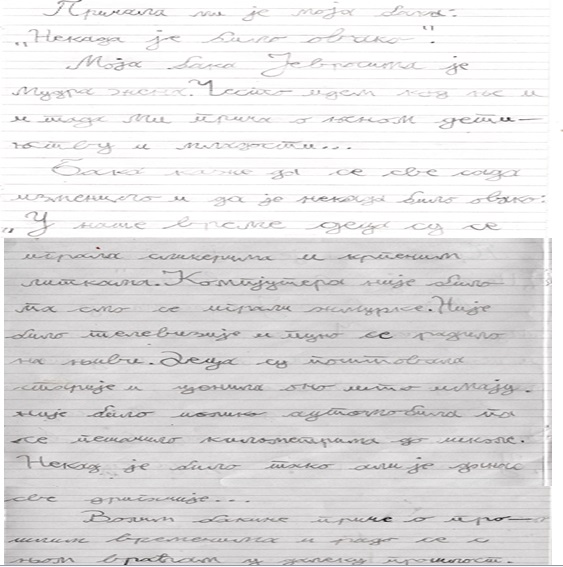 Причала ми је моја бака:
„Некада је било овако“.
Моја бака Јевросима је
мудра жена. Често идем код ње и
и тада ми прича о њеном дети—
њству и младости...
Бака каже да се све сада
изменило и да је некада било овако:
„У наше време деца су се
играла сликерима и крпеним
луткама. Компјутера није било
па смо се играли жмурке. Није
било телевизије и пуно се радило
на њиви. Деца су поштовала
старије и ценила оно што имају.
није било аутомобила па
се пешачило километрима до школе.
Некад је било тако али је данас
све другачије...
Волим бакине приче о про—
шлим временима и радо се с
њом враћам у далеку прошлост.